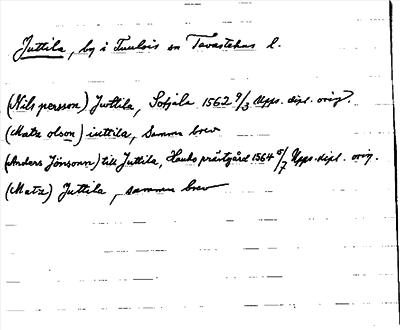 Juttila, by i Tuulois sn Tavastehus l.
(Nils persson) Juttila, Sotjala 1562 9/3 Upps. dipl. orig.
(Matz olson) iuttila, samma brev
(Anders Jönsonn) till Juttila, Hauho prästgård 1564 5/7 Upps. dipl. orig.
(Matz) Juttila, samma brev